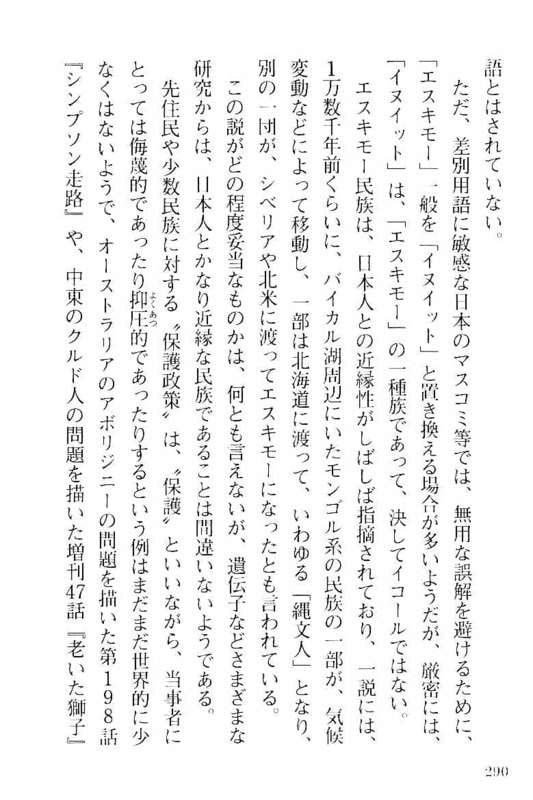 語とはされていない。
　ただ、差別用語に敏感な日本のマスコミ等では、無用な誤解を避けるために、
「エスキモー」一般を「イヌイット」と置き換える場合が多いようだが、厳密には、
「イヌイット」は、「エスキモー」の一種族であって、決してイコールではない。
　エスキモー民族は、日本人との近縁性がしばしば指摘されており、一説には、
1万数千年前くらいに、バイカル湖周辺にいたモンゴル系の民族の一部が、気候
変動などによって移動し、一部は北海道に渡って、いわゆる「縄文人」となり、
別の一団が、シベリアや北米に渡ってエスキモーになったとも言われている。
　この説がどの程度妥当なものかは、何とも言えないが、遺伝子などさまざまな
研究からは、日本人とかなり近縁な民族であることは間違いないようである。
　先住民や少数民族に対する〝保護政策〟は、〝保護〟といいながら、当事者に
とっては侮蔑的であったり抑圧的であったりするという例はまだまだ世界的に少
そくあつ
なくはないようで、オーストラリアのアボリジニーの問題を描いた第198話
『シンプソン走路』や、中東のクルド人の問題を描いた増刊47話『老いた獅子』
290